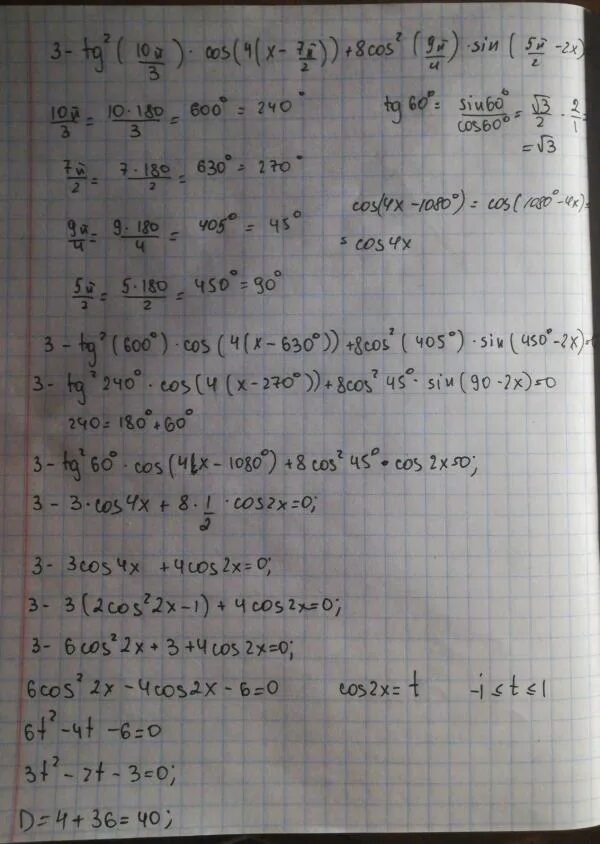 3 - tg²(10π/3) · cos(4(x - 7π/2)) + 8cos²(9π/4) · sin(5π/2 - 2x)
10π/3 = 10·180/3 = 600° = 240°
tg 60° = sin60°/cos60° = √3/2 · 2/1 =
= √3
7π/2 = 7·180/2 = 630° = 270°
cos(4x - 1080°) = cos(1080° - 4x) =
= cos4x
9π/4 = 9·180/4 = 405° = 45°
5π/2 = 5·180/2 = 450° = 90°
3 - tg²(600°) · cos(4(x - 630°)) + 8cos²(405°) · sin(450° - 2x) =
3 - tg² 240° · cos(4(x - 270°)) + 8cos² 45° · sin(90 - 2x) = 0
240 = 180° + 60°
3 - tg² 60° · cos(4x - 1080°) + 8cos² 45° · cos 2x = 0;
3 - 3·cos4x + 8·1/2 · cos2x = 0;
3 - 3cos4x + 4cos2x = 0;
3 - 3(2cos²2x - 1) + 4cos2x = 0;
3 - 6cos²2x + 3 + 4cos2x = 0;
6cos²2x - 4cos2x - 6 = 0 cos2x = t -1 ≤ t ≤ 1
6t² - 4t - 6 = 0
3t² - 2t - 3 = 0;
D = 4 + 36 = 40;